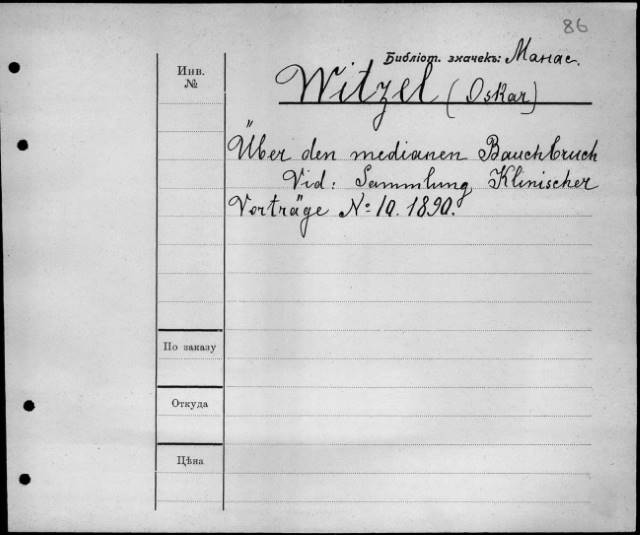 86
Библіот. значекъ: Манас.
Инв.
№
Witzel (Oskar)
Über den medianen Bauchbruch
Vid: Sammlung Klinischer
Vorträge No 10. 1890.
По заказу
Откуда
Цѣна